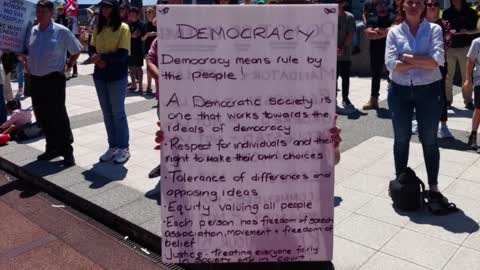 DEMOCRACY
Democracy means rule by
the people!
A Democratic society is
one that works towards the
ideals of democracy
• Respect for individuals and their
right to make their own choices
• Tolerance of differences and
opposing ideas
• Equity valuing all people
• Each person has freedom of speech,
association, movement + freedom of
belief
Justice: Treating everyone fairly
in society and in court